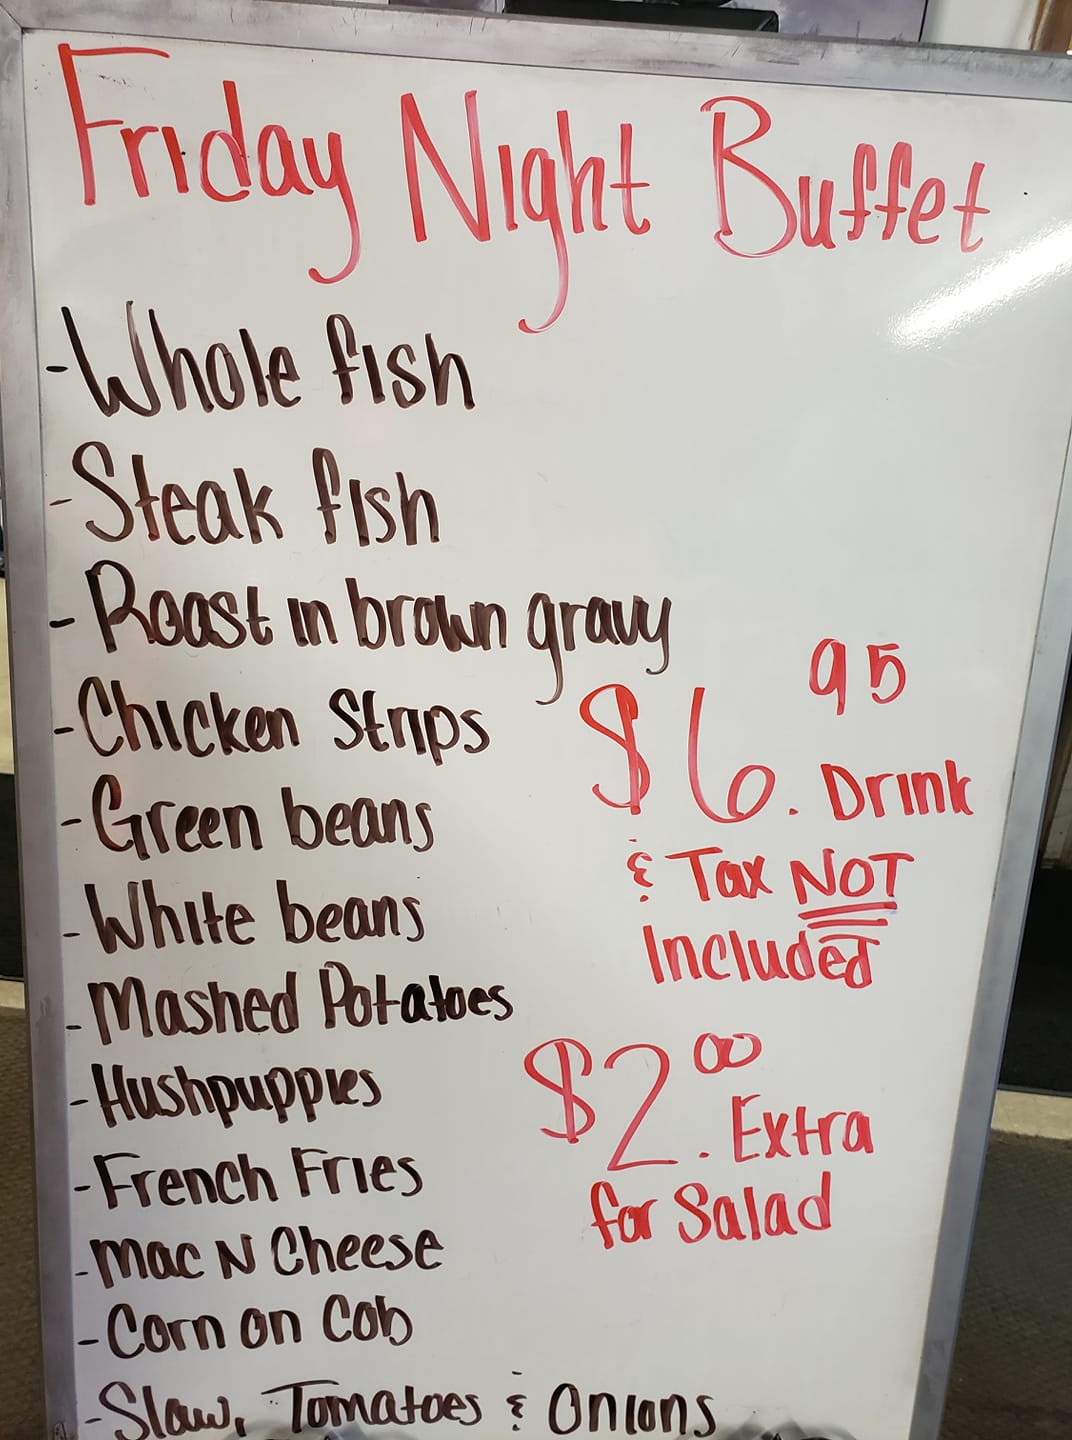 Friday Night Buffet
- Whole fish
- Steak fish
- Roast in brown gravy
- Chicken Strips
- Green beans
- White beans
- Mashed Potatoes
- Hushpuppies
- French Fries
- Mac N Cheese
- Corn on Cob
- Slaw, Tomatoes & Onions
$6.95 Drink
& Tax NOT
Included
$2.00 Extra
for Salad